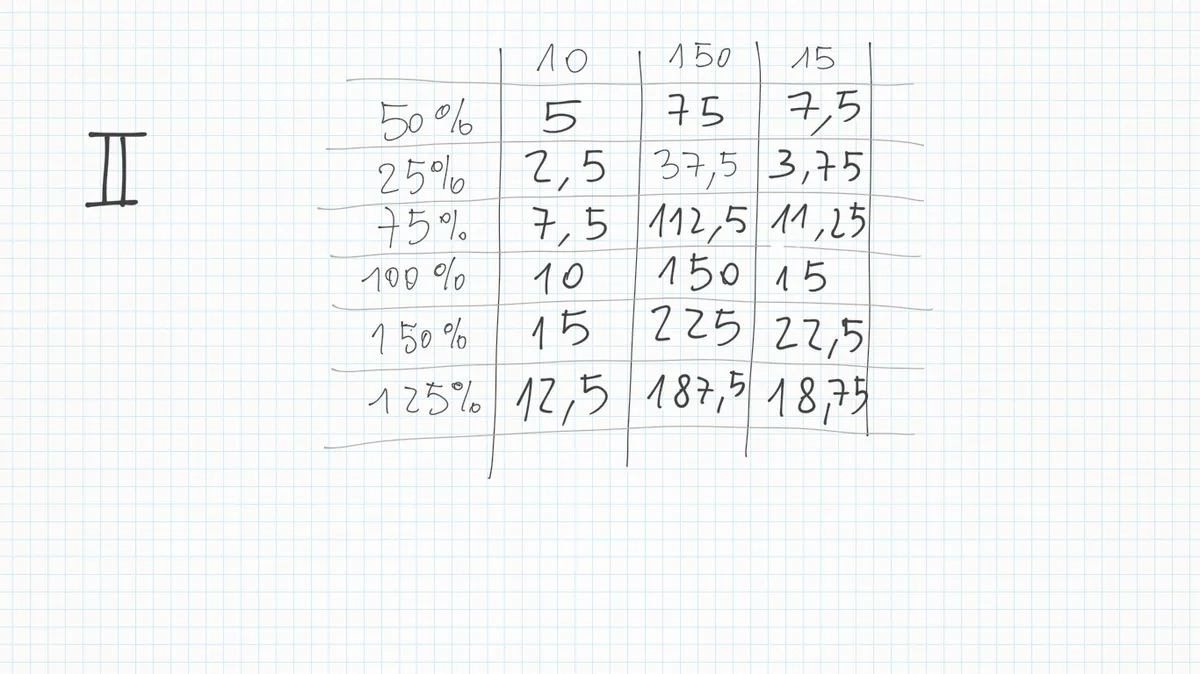 10 150 15
50% 5 75 7,5
II
25% 2,5 37,5 3,75
75% 7,5 112,5 11,25
100% 10 150 15
150% 15 225 22,5
125% 12,5 187,5 18,75